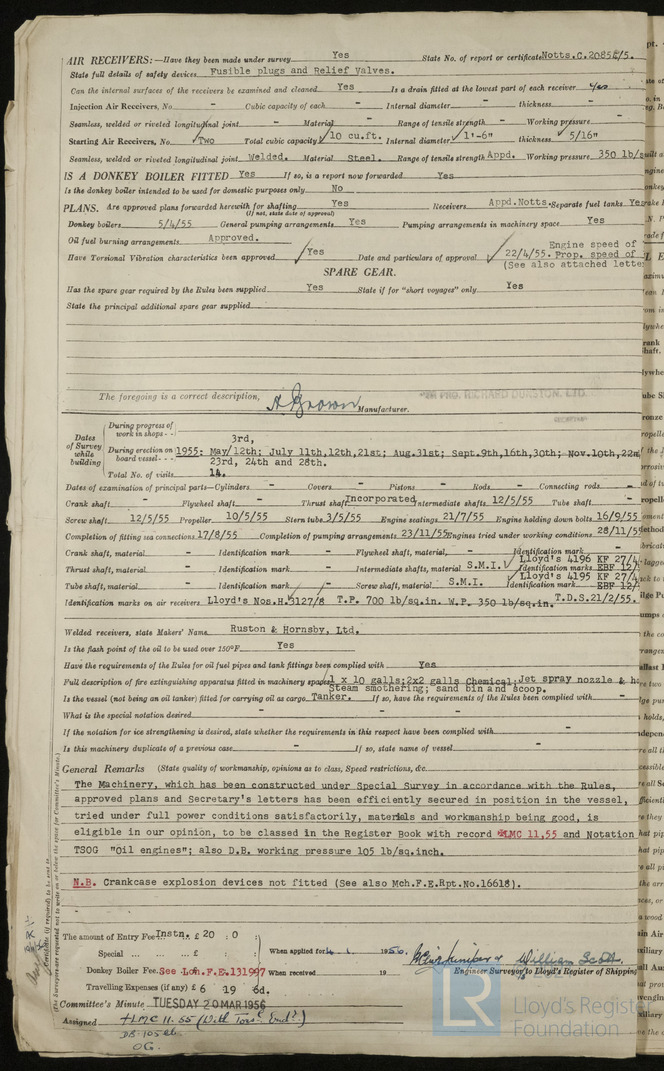 AIR RECEIVERS:—Have they been made under survey Yes State No. of report or certificate Notts.C.20858/5.
State full details of safety devices Fusible plugs and Relief Valves.
Can the internal surfaces of the receivers be examined and cleaned Yes Is a drain fitted at the lowest part of each receiver yes
Injection Air Receivers, No. - Cubic capacity of each - Internal diameter - thickness -
Seamless, welded or riveted longitudinal joint - Material - Range of tensile strength - Working pressure -
Starting Air Receivers, No. Two Total cubic capacity 10 cu.ft. Internal diameter 1'-6" thickness 5/16"
Seamless, welded or riveted longitudinal joint Welded. Material Steel. Range of tensile strength Appd. Working pressure 350 lb/s
IS A DONKEY BOILER FITTED Yes If so, is a report now forwarded Yes
Is the donkey boiler intended to be used for domestic purposes only No
PLANS. Are approved plans forwarded herewith for shafting Yes Receivers Appd.Notts. Separate fuel tanks Yes
(If not, state date of approval)
Donkey boilers 5/4/55 General pumping arrangements Yes Pumping arrangements in machinery space Yes
Oil fuel burning arrangements Approved.
Engine speed of
Have Torsional Vibration characteristics been approved Yes Date and particulars of approval 22/4/55. Prop. speed of
(See also attached lette
SPARE GEAR.
Has the spare gear required by the Rules been supplied Yes State if for "short voyages" only Yes
State the principal additional spare gear supplied
The foregoing is a correct description,
A Brown Manufacturer.
RICHARD DUNSTON, LTD.
Dates of Survey while building
During progress of work in shops - -
3rd,
During erection on board vessel - - 1955: May/12th; July 11th,12th,21st; Aug.31st; Sept.9th,16th,30th; Nov.10th,22n
23rd, 24th and 28th.
Total No. of visits 14.
Dates of examination of principal parts—Cylinders - Covers - Pistons - Rods - Connecting rods -
Crank shaft - Flywheel shaft - Thrust shaft Incorporated Intermediate shafts 12/5/55 Tube shaft -
Screw shaft 12/5/55 Propeller 10/5/55 Stern tube 3/5/55 Engine seatings 21/7/55 Engine holding down bolts 16/9/55
Completion of fitting sea connections 17/8/55 Completion of pumping arrangements 23/11/55 Engines tried under working conditions 28/11/5
Crank shaft, material - Identification mark - Flywheel shaft, material - Identification mark -
Lloyd's 4196 KF 27/4
Thrust shaft, material - Identification mark - Intermediate shafts, material S.M.I. Identification marks EBF 12/
Lloyd's 4195 KF 27/4
Tube shaft, material - Identification mark - Screw shaft, material S.M.I. Identification mark EBF 12/
Identification marks on air receivers Lloyd's Nos.H.3127/8 T.P. 700 lb/sq.in. W.P. 350 lb/sq.in. T.D.S.21/2/55.
Welded receivers, state Makers' Name Ruston & Hornsby, Ltd.
Is the flash point of the oil to be used over 150°F. Yes
Have the requirements of the Rules for oil fuel pipes and tank fittings been complied with Yes
Full description of fire extinguishing apparatus fitted in machinery spaces 1 x 10 galls; 2x2 galls Chemical; Jet spray nozzle & ho
Steam smothering; sand bin and scoop.
Is the vessel (not being an oil tanker) fitted for carrying oil as cargo Tanker. If so, have the requirements of the Rules been complied with -
What is the special notation desired - -
If the notation for ice strengthening is desired, state whether the requirements in this respect have been complied with -
Is this machinery duplicate of a previous case - If so, state name of vessel -
General Remarks (State quality of workmanship, opinions as to class, Speed restrictions, &c.
The Machinery, which has been constructed under Special Survey in accordance with the Rules,
approved plans and Secretary's letters has been efficiently secured in position in the vessel,
tried under full power conditions satisfactorily, materials and workmanship being good, is
eligible in our opinion, to be classed in the Register Book with record LMC 11,55 and Notation
TSOG "Oil engines"; also D.B. working pressure 105 lb/sq.inch.
N.B. Crankcase explosion devices not fitted (See also Mch.F.E.Rpt.No.16618).
The amount of Entry Fee Instn. £ 20 : 0 : When applied for 1956.
Special ... ... £ : :
Donkey Boiler Fee See Lon.F.E.131997 When received 19
Travelling Expenses (if any) £ 6 19 6d.
William Scott
Engineer Surveyor to Lloyd's Register of Shipping
Committee's Minute TUESDAY 20 MAR 1956
Assigned +LMC 11.55 (With Tors. Endt.)
DB 105 lb
OG.
(The Surveyors are requested not to write on or below the space for Committee's Minute.)
LR
Lloyd's Register
Foundation